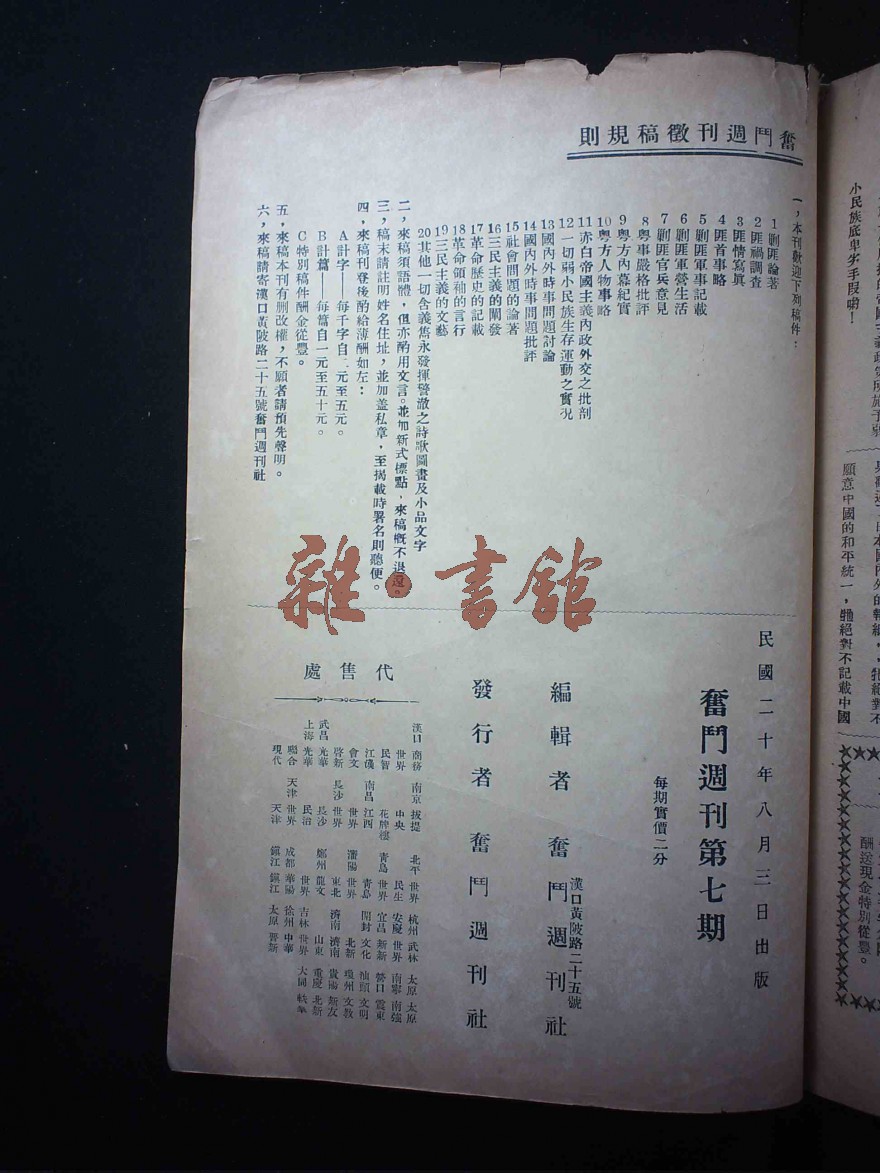 奮鬥週刊徵稿規則
一，本刊歡迎下列稿件：
1剿匪論著
2匪禍調查
3匪情寫真
4匪首事略
5剿匪軍事記載
6剿匪軍營生活
7剿匪官兵意見
8粵事嚴格批評
9粵方內幕紀實
10粵方人物事略
11赤白帝國主義內政外交之批剖
12一切弱小民族生存運動之實況
13國內外時事問題討論
14國內外時事問題批評
15社會問題的論著
16三民主義的闡發
17革命歷史的記載
18革命領袖的言行
19三民主義的文藝
20其他一切含義雋永發揮警澈之詩歌圖畫及小品文字
二，來稿須語體，但亦酌用文言。並加新式標點，來稿概不退還。
三，稿末請註明姓名住址，並加盖私章，至揭載時署名則聽便。
四，來稿刊登後酌給薄酬如左：
A計字——每千字自二元至五元。
B計篇——每篇自一元至五十元。
C特別稿件酬金從豐。
五，來稿本刊有刪改權，不願者請預先聲明。
六，來稿請寄漢口黃陂路二十五號奮鬥週刊社
雜·書館
民國二十年八月三日出版
奮鬥週刊第七期
每期實價二分
漢口黃陂路二十五號
編輯者 奮鬥週刊社
發行者 奮鬥週刊社
代售處
漢口 商務 南京 拔提 北平 世界 杭州 武林 太原 太原
世界 中央 民生 安慶 世界 南寧 南強
民智 花牌樓 青島 世界 宜昌 新新 營口 震東
江漢 南昌 江西 青島 開封 文化 汕頭 文明
會文 世界 瀋陽 世界 北新 瓊州 文教
啓新 長沙 世界 東北 濟南 濟南 貴陽 新友
武昌 光華 長沙 鄭州 龍文 山東 重慶 北新
上海 光華 民治 世界 吉林 世界 大同
天津 世界 成都 華陽 徐州 中華
現代 天津 鎮江 鎮江 太原 晋新
小民族底卑劣手段喲！
願意中國的和平統一，牠絕對不記載中國
酬送現金特別從豐。